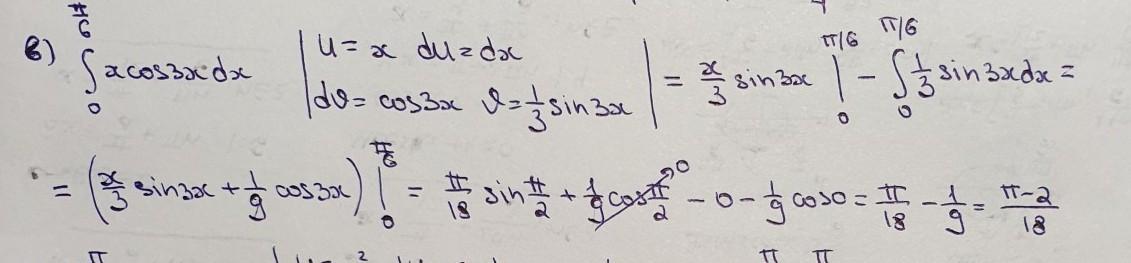 в) ∫₀^{π/6} x cos3x dx | u = x du = dx dv = cos3x v = 1/3 sin3x | = x/3 sin3x |₀^{π/6} − ∫₀^{π/6} 1/3 sin3x dx =
= (x/3 sin3x + 1/9 cos3x) |₀^{π/6} = π/18 sin π/2 + 1/9 cos π/2 → 0 − 0 − 1/9 cos0 = π/18 − 1/9 = π−2/18